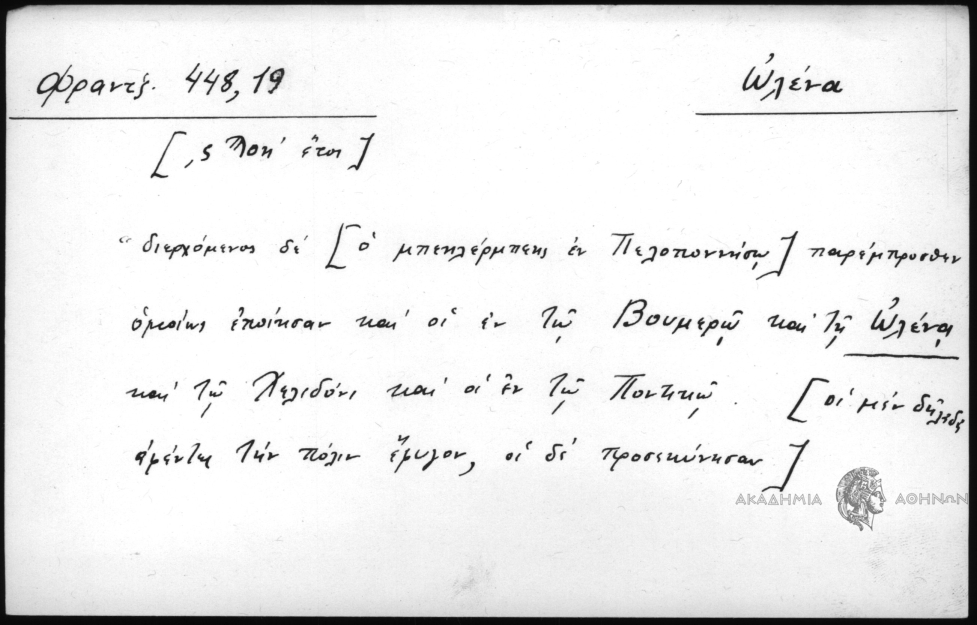 Φραντζ. 448, 19
Ὠλένα
[ ͵ϛ ϡξη´ ἔτει ]
“ διερχόμενος δέ [ ὁ μπεκλέρμπεης ἐν Πελοποννήσῳ ] παρέμπροσθεν
ὁμοίως ἐποίησαν καί οἱ ἐν τῷ Βουμερῷ καί τῇ Ὠλένᾳ
καί τῷ Χελιδόνι καί οἱ ἐν τῷ Ποντικῷ. [ οἱ μέν δηλαδή
ἀφέντες τήν πόλιν ἔφυγον, οἱ δέ προσεκύνησαν ]
ΑΚΑΔΗΜΙΑ ΑΘΗΝΩΝ